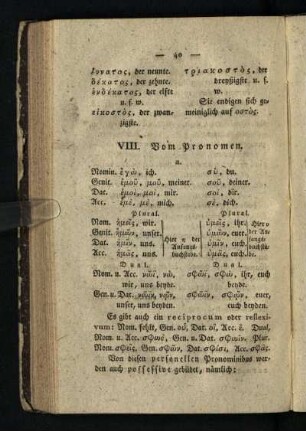 — 40 —
ἔννατος, der neunte. τριακοστὸς, der
δέκατος, der zehnte. dreyßigste. u. s.
ἑνδέκατος, der elfte w.
u. s. w. Sie endigen sich ge-
εἰκοστὸς, der zwan- meiniglich auf οστὸς.
zigste.
VIII. Vom Pronomen,
Nomin. ἐγὼ, ich. σὺ, du.
Genit. ἐμοῦ, μοῦ, meiner. σοῦ, deiner.
Dat. ἐμοὶ, μοὶ, mir. σοὶ, dir.
Acc. ἐμὲ, μὲ, mich. σὲ, dich.
Plural. Plural.
Nom. ἡμεῖς, wir. ὑμεῖς, ihr.
Genit. ἡμῶν, unser. ὑμῶν, euer.
Dat. ἡμῖν, uns. ὑμῖν, euch.
Acc. ἡμᾶς, uns. ὑμᾶς, euch.
Hier η der Anfangs-
buchstabe.
Dual. Dual.
Nom. u. Acc. νῶϊ, νὼ, σφῶϊ, σφὼ, ihr, euch
wir, uns beyde. beyde.
Gen. u. Dat. νῶϊν, νῷν, σφῶϊν, σφῷν, euer,
unser, uns beyden. euch beyden.
Es gibt auch ein reciprocum oder reflexi-
vum: Nom. fehlt, Gen. οὗ, Dat. οἷ, Acc. ἓ. Dual,
Nom. u. Acc. σφωὲ, Gen. u. Dat. σφωὶν. Plur.
Nom. σφεῖς, Gen. σφῶν, Dat. σφίσι, Acc. σφᾶς.
Von diesen personellen Pronominibus wer-
den auch possessive gebildet, nämlich: